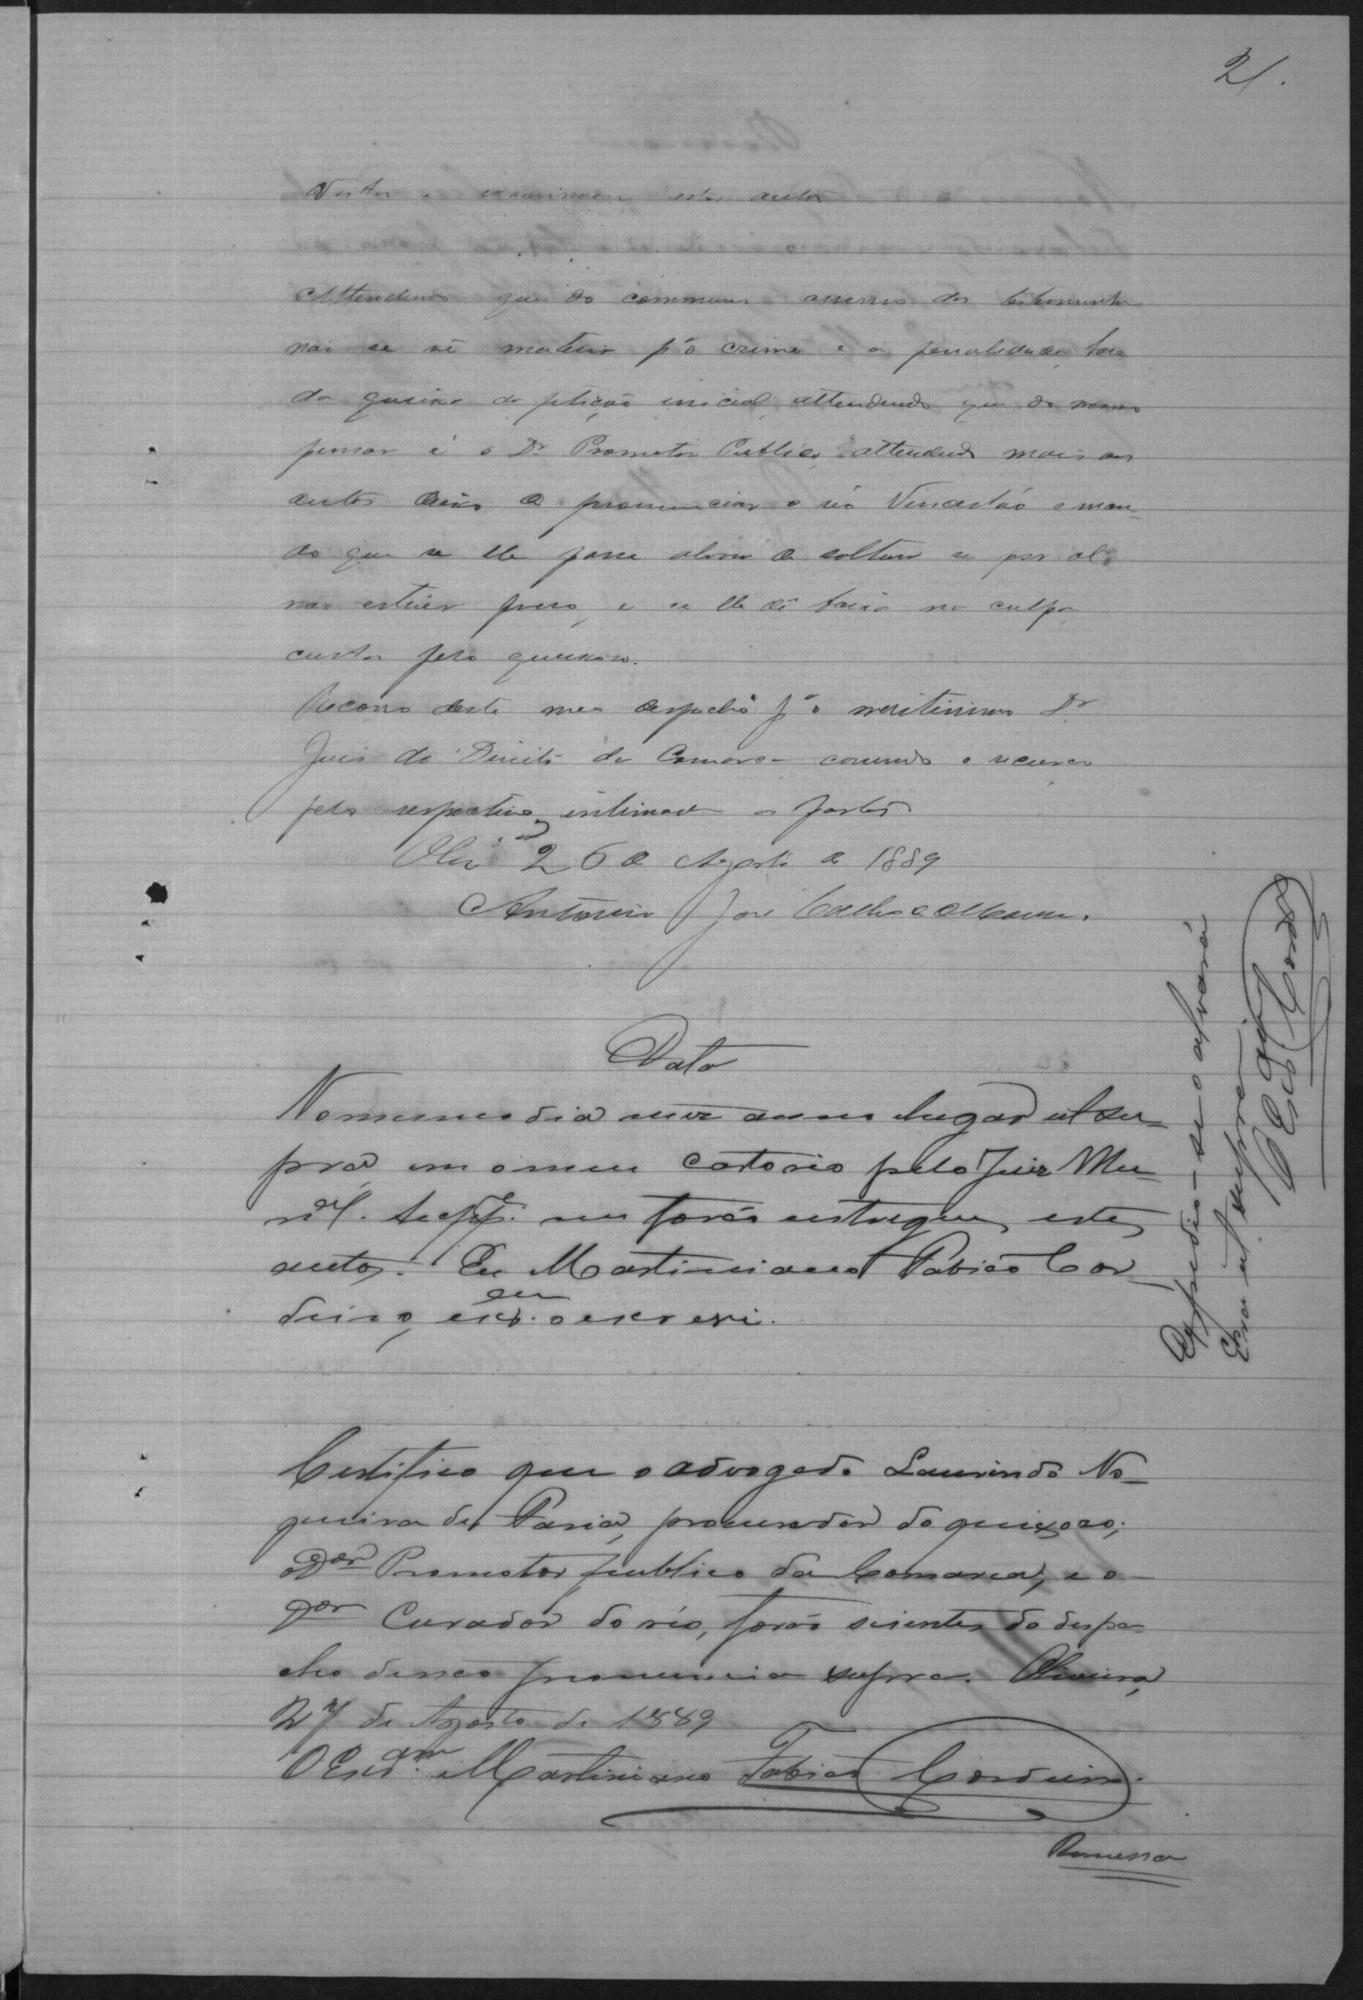 21.
Vistos e examinados estes autos
Attendendo que do commum accerso das testemunha
nao se vê materia pª o crime e a penalidade
da queixa da petição inicial, attendendo que do mesmo
pensar é o Dr Promotor Publico, attendendo mais aos
autos deixo de pronunciar o réo Venancio e man-
do que se lhe passe alvará de soltura se por al
nao estiver preso, e se lhe dê baixa na culpa,
custas pelo queixoso.
Recorro deste meu despacho pª o meritissimo Dr
Juis de Direito da Comarca correndo o recurso
pelo respectivo, intimadas as partes
Olivª 26 de Agosto de 1889
Antonio José Coelho de Moura.
Data
No mesmo dia mez anno e lugar ut su-
pra, em o meu cartorio pelo Juiz Mu-
nal. Suppe. me forão entregues estes
autos. Eu Martiniano Fabico Cor
deiro, escram o escrevi.
Expedio-se o alvará
Era ut supra
O Escam Cordro
Certifico que o advogado Laurindo No-
gueira de Faria, procurador do queixoso;
o Dor Promotor publico da Comarca, e o
Dor Curador do réo, forão scientes do despa-
cho de não pronuncia supra. Oliveira,
27 de Agosto de 1889
O Escram Martiniano Fabico Cordeiro.
Remessa